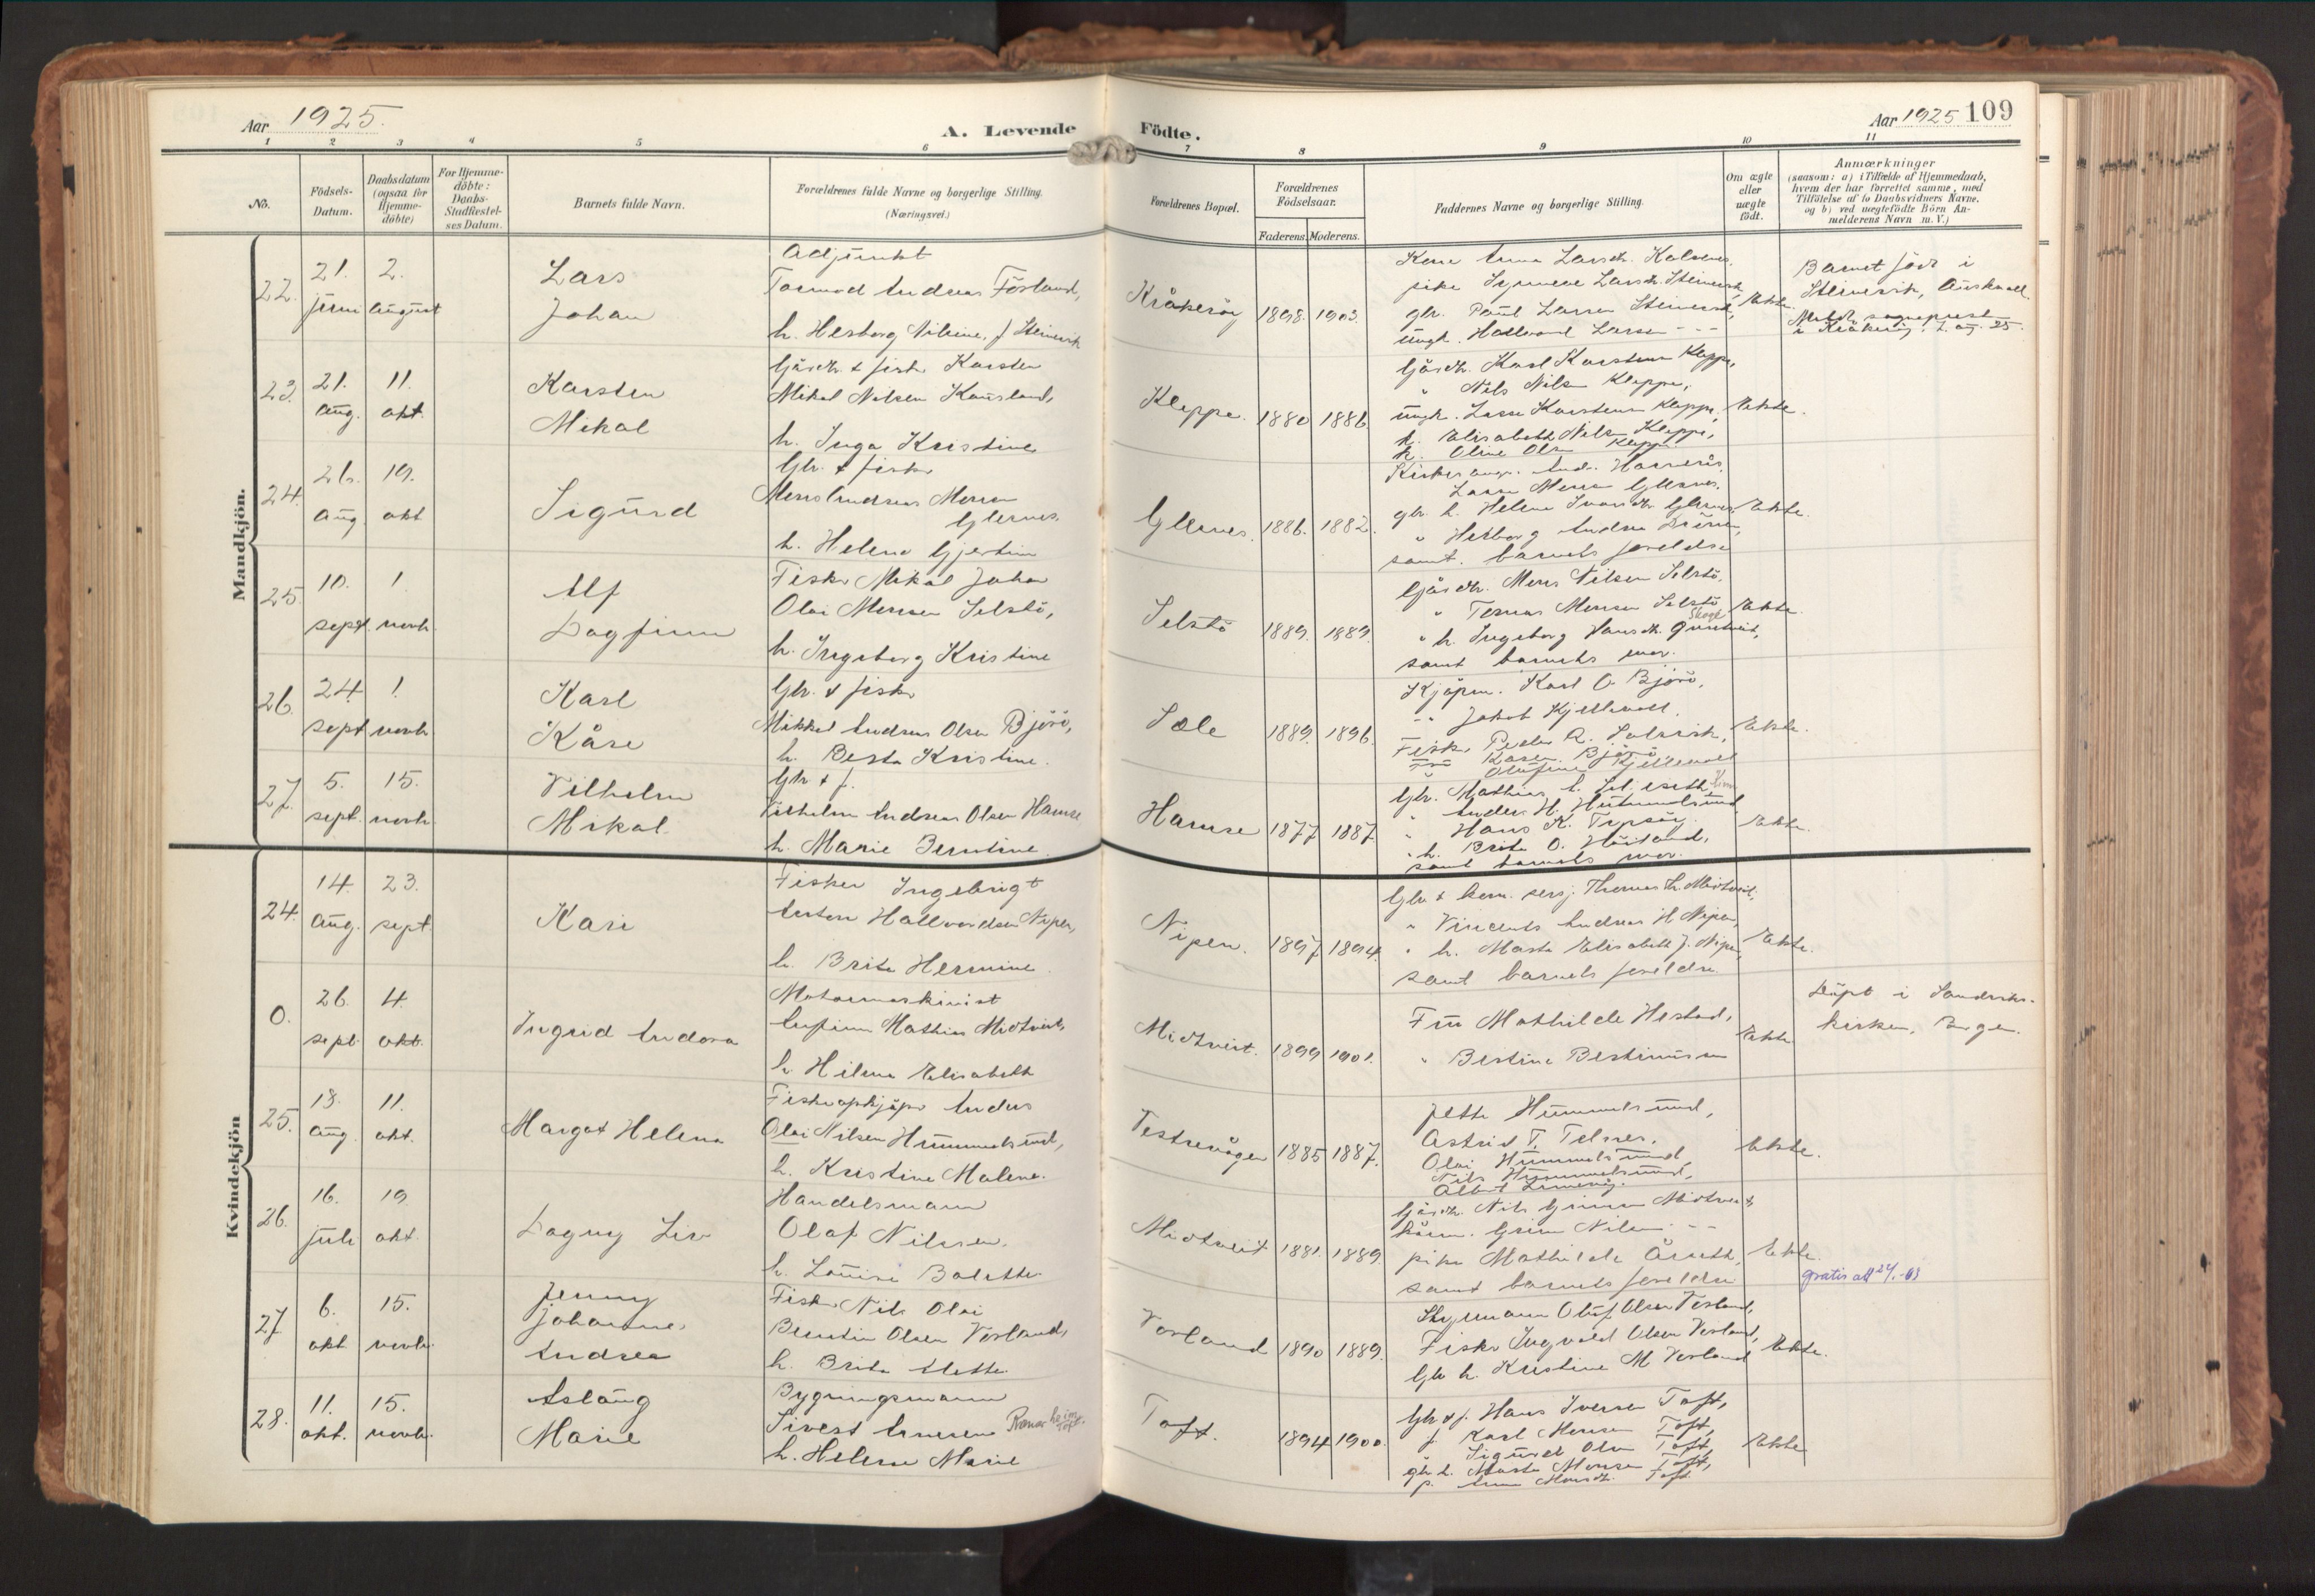 Aar 1925.
A. Levende
Födte.
Aar 1925
109
1 2 3 4 5 6 7 8 9 10 11
No.
Födsels-
Datum.
Daabsdatum
(ogsaa for
Hjemme-
döbte)
For Hjemme-
döbte:
Daabs-
Stadfæstel-
ses Datum.
Barnets fulde Navn.
Forældrenes fulde Navne og borgerlige Stilling.
(Næringsvei.)
Forældrenes Bopæl.
Forældrenes
Födselsaar.
Faderens. Moderens.
Faddernes Navne og borgerlige Stilling.
Om ægte
eller
uægte
født.
Anmærkninger
(saasom: a) i Tilfælde af Hjemmedaab,
hvem der har forrettet samme, med
Tilföielse af to Daabsvidners Navne,
og b) ved uægtefödte Börn An-
melderens Navn m. V.)
Mandkjön.
22.
21. juni
2. august
Lars
Johan
Adjunkt
Tormod Andreas Förland,
h. Herborg Nilsine, f. Steinsvik
Kråkeröy
1898. 1903.
Kone Anna Larsdr. Kalvenes
pike Synneve Larsdr. Steinsvik,
gbr. Paul Larsen Steinsvik,
ungk. Hallvard Larsen - - -
Ekte.
Barnet föd i
Steinsvik, Austevoll.
23.
21. aug.
11. okt.
Karsten
Mikal
Gårdbr. & fisker Karsten
Mikal Nilsen Kausland,
h. Inga Kristine
Kleppe.
1880 1886
Gårdbr. Karl Karstensen Kleppe,
" Nils Nilsen Kleppe,
ungk. Lasse Karstensen Kleppe,
k. Elisabeth Nilsen Kleppe,
k. Oline Olsen Kleppe
Ekte.
24.
26. aug.
19. okt
Sigurd
Gbr. & fisker
Mons Andreas Monsen
Glesnes,
h. Helene Gjertine
Glesnes.
1886. 1882.
Lasse Monsen Glesnes,
gbr. h. Helene Ivarsdtr. Glesnes,
" Herborg Andrea
samt. barnets foreldre
Ekte.
25.
10. sept
1. novb.
Alf
Dagfinn
Fisker Mikal Johan
Olai Monsen Selstö,
h. Ingeborg Kristine
Selstö
1889. 1889.
Gårdbr. Mons Nilsen Selstö,
" Tomas Monsen Selstö
" h. Ingeborg Hansdtr.
samt barnets mor.
Ekte.
26.
24. sept
1. novb.
Karl
Kåre
Gbr. & fisker
Mikkel Andreas Olsen Björö,
h. Berta Kristine.
Sæle
1889. 1896.
Kjöpm. Karl O. Björö,
" Jakob Kjellevold.
Fisker Peder A. Solsvik,
Fru Karen Björö
" Olufine Kjellevold
Ekte.
27.
5. sept.
15. novb.
Vilhelm
Mikal.
Gbr & f.
Vilhelm Andreas Olsen Hamre
h. Marie Berntine.
Hamre
1877 1887.
Gbr. Mathias
" Anders H. Hummelsund
" Hans K. Trysöy.
" h. Brita O. Höiland,
samt barnets mor.
Ekte.
Kvindekjön
24.
14. aug.
23. sept.
Kari
Fisker Ingebrigt
Anton Hallvardsen Nipen,
h. Brita Hermine.
Nipen.
1897 1894.
Gbr & kom. sersj. Thomas Th. Midtveit,
" Vincents Andreas H Nipen,
" h. Marta Elisabeth J. Nipen,
samt barnets foreldre.
Ekte.
0.
26. sept.
4. okt.
Ingrid Andora
Motormaskinist
Anfinn Mathias Midtveit,
h Hilma Elisabeth
Midtveit.
1899 1901.
Fru Mathilde Hestad,
" Bertine Bertinusen
Ekte
Döpt i Sandviks-
kirken, Bergen.
25.
13. aug.
11. okt.
Margot Helena
Fiskeopkjöper Anders
Olai Nilsen Hummelsund,
h. Kristine Malene.
Testevågen
1885 1887.
Jette Hummelsund,
Astrid T. Telnes.
Olai Hummelsund,
Nils Hummelsund,
Ekte.
26.
16. juli
19 okt.
Dagny Liv
Handelsmann
Olaf Nilsen.
h. Louise Bolette
Midtveit
1881. 1889.
Gårdbr. Nils Grimsen Midtveit,
Grim Nilsen - -
pike Mathilde Årseth,
samt barnets foreldre
Ekte.
gratis att 24/.-63
27
6. okt
15. novb.
Jenny
Johanne
Andrea
Fisker Nils Olai
Berntin Olsen Vorland,
h. Brita Mette.
Vorland
1890 1889.
Styrmann Oluf Olsen Vorland,
Fisker Ingvald Olsen Vorland,
Gbr h. Kristine M Vorland
Ekte.
28.
11. okt.
15. novb.
Aslaug
Marie
Bygningsmann
Sivert Arnesen Romarheim Toft.
h. Helene Marie
Toft.
1894 1900.
Gbr & f. Hans Iversen Toft,
f. Karl Monsen Toft,
Sigurd Olsen Toft
gbr h. Marta Monsen Toft,
p. Anna Monsdtr. Toft
Ekte